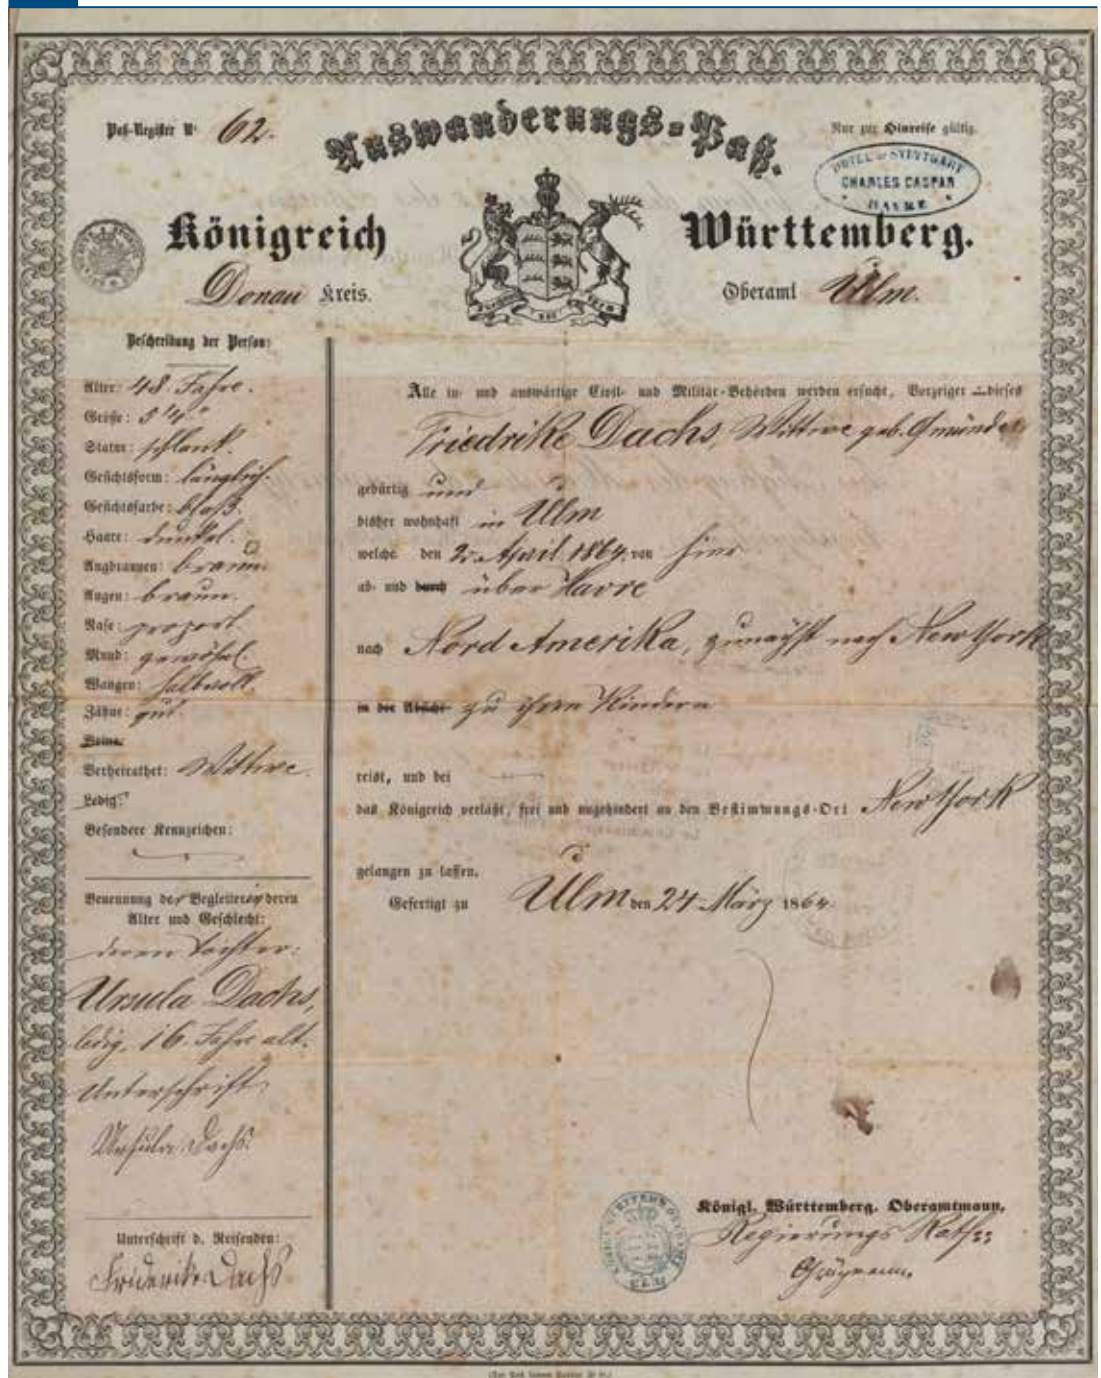 Paß-Register Nº 62.
Auswanderungs-Paß.
Nur zur Hinreise gültig.
HOTEL DE STUTTGART
CHARLES CASPAR
HAVRE
Königreich Württemberg.
Donau Kreis.
Oberamt Ulm.
Beschreibung der Person:
Alter: 48. Jahre.
Größe: 5' 4"
Statur: schlank.
Gesichtsform: länglich.
Gesichtsfarbe: blaß.
Haare: dunkel.
Augbraunen: braun.
Augen: braun.
Nase: proport.
Mund: gewöhnl.
Wangen: halbvoll.
Zähne: gut.
Beine:
Verheirathet: Wittwe.
Ledig:
Besondere Kennzeichen:
Benennung der Begleiterin deren
Alter und Geschlecht:
deren Tochter:
Ursula Dachs,
ledig, 16. Jahre alt.
Unterschrift:
Ursula Dachs.
Unterschrift d. Reisenden:
Friderike Dachs
Alle in- und auswärtige Civil- und Militär-Behörden werden ersucht, Vorzeiger dieses
Friedrike Dachs, Wittwe geb. Gmünder
gebürtig und
bisher wohnhaft in Ulm
welche den 2. April 1864. von hier
ab- und durch über Havre
nach Nord Amerika, zunächst nach New York
in der Absicht zu ihren Kindern
reist, und bei
das Königreich verläßt, frei und ungehindert an den Bestimmungs-Ort New York
gelangen zu lassen.
Gefertigt zu Ulm den 24 März 1864.
Königl. Württemberg. Oberamtmann,
Regierungs Rath